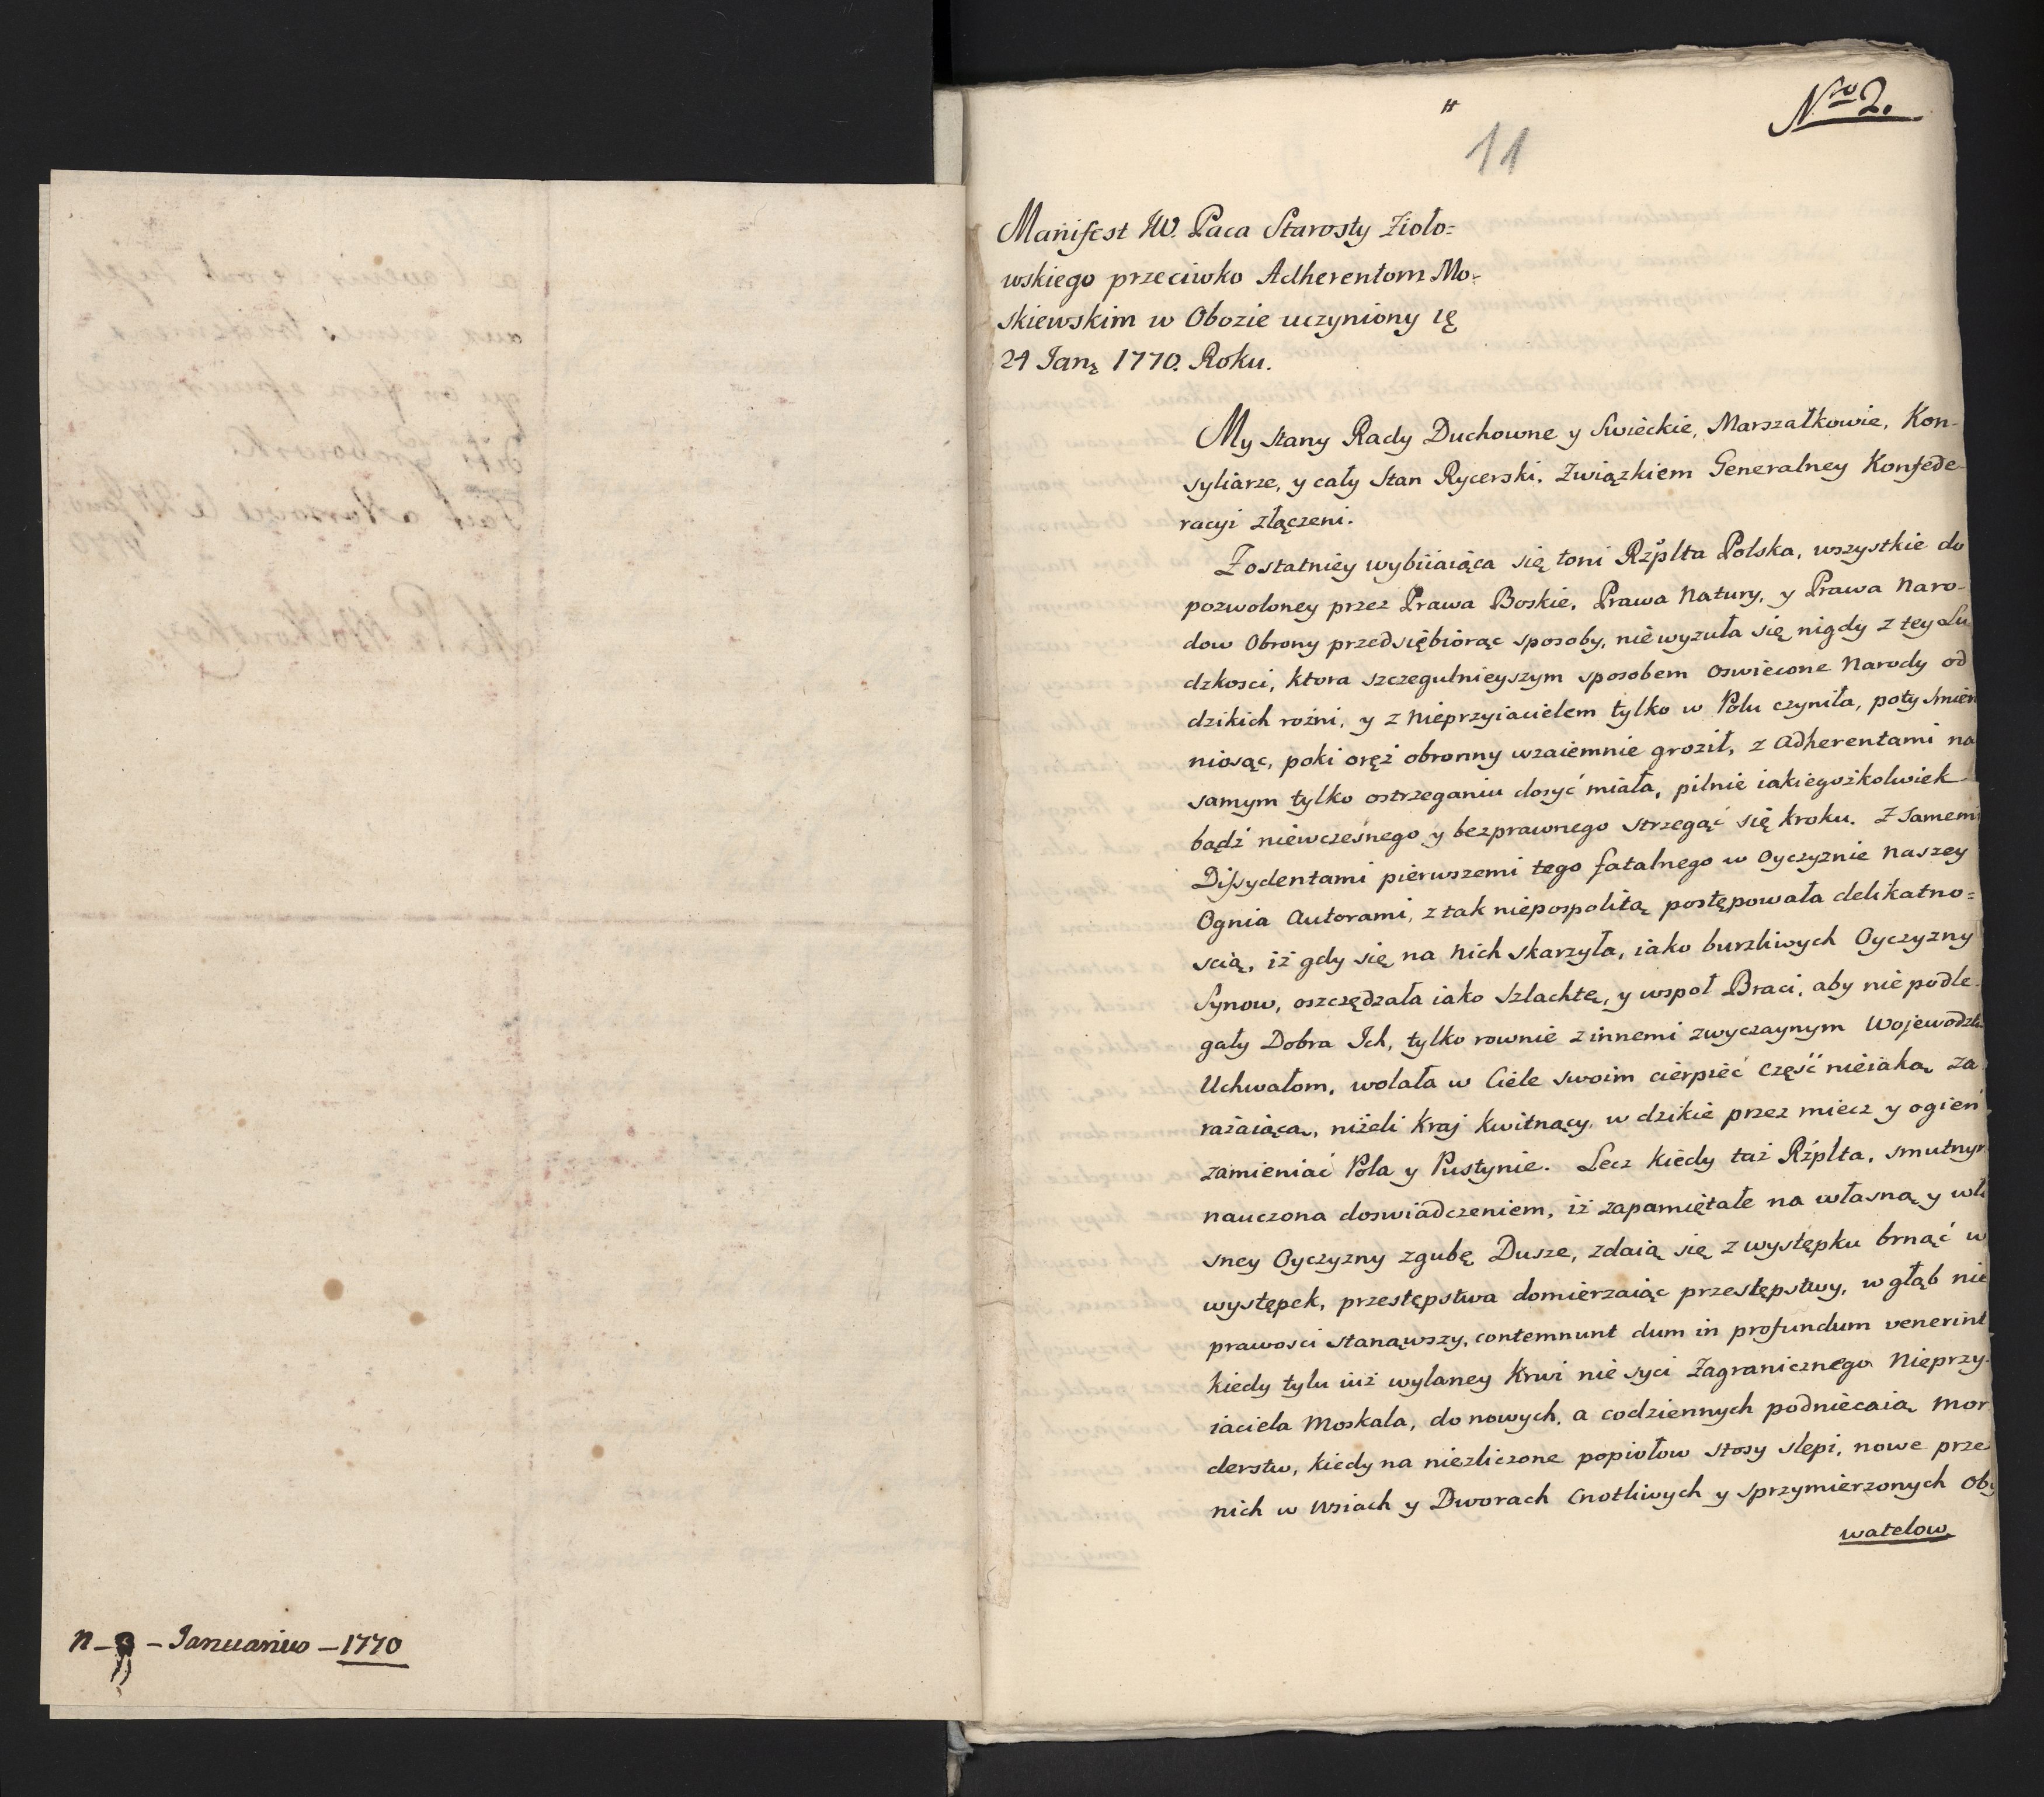 n – – Januarius – 1770
Nro 2.
11
Manifest JW. Paca Starosty Zioło=
wskiego przeciwko Adherentom Mo=
skiewskim w Obozie uczyniony
24 Jan. 1770. Roku.
My Stany Rady Duchowne y Swieckie, Marszałkowie, Kon-
syliarze, y cały Stan Rycerski, Związkiem Generalney Konfede-
racyi złączeni.
Z ostatniey wybiiaiąca się toni Rzplta Polska, wszystkie do
pozwoloney przez Prawa Boskie, Prawa Natury, y Prawa Naro-
dow Obrony przedsiębiorąc sposoby, niewyzuła się nigdy z tey Lu
dzkosci, ktora szczegulnieyszym sposobem oswiecone Narody od
dzikich rożni, y z Nieprzyiacielem tylko w Polu czyniła, poty smier
niosąc, poki oręż obronny wzaiemnie groził, z Adherentami na
samym tylko ostrzeganiu dosyć miała, pilnie iakiegożkolwiek
bądź niewczesnego y bezprawnego strzegąć się kroku. Z samemi
Dissydentami pierwszemi tego fatalnego w Oyczyznie Naszey
Ognia Autorami, z tak niepospolitą postępowała delikatno=
scią, iż gdy się na Nich skarzyła, iako burzliwych Oyczyzny
Synow, oszczędzała iako Szlachtę, y wspoł Braci, aby nie podle-
gały Dobra Ich, tylko rownie z innemi zwyczaynym Wojewodzk
Uchwałom, wolała w Ciele swoim cierpieć część nieiaką za
rażaiącą, niżeli Kraj kwitnący, w dzikie przez miecz y ogień
zamieniać Pola y Pustynie. Lecz kiedy taż Rzplta, smutnym
nauczona doswiadczeniem, iż zapamiętałe na własną y wła
sney Oyczyzny zgubę Dusze, zdaią się z występku brnąć w
występek, przestępstwa domierzaiąc przestępstwy, w głąb nie
prawosci stanąwszy, contemnunt dum in profundum venerint
kiedy tylu iuż wylaney krwi nie syci Zagranicznego Nieprzy-
iaciela Moskala, do nowych, a codziennych podniecaią mor
derstw, kiedy na niezliczone popiołow stosy slepi, nowe przez
nich w Wsiach y Dworach Cnotliwych y sprzymierzonych Oby
watelow